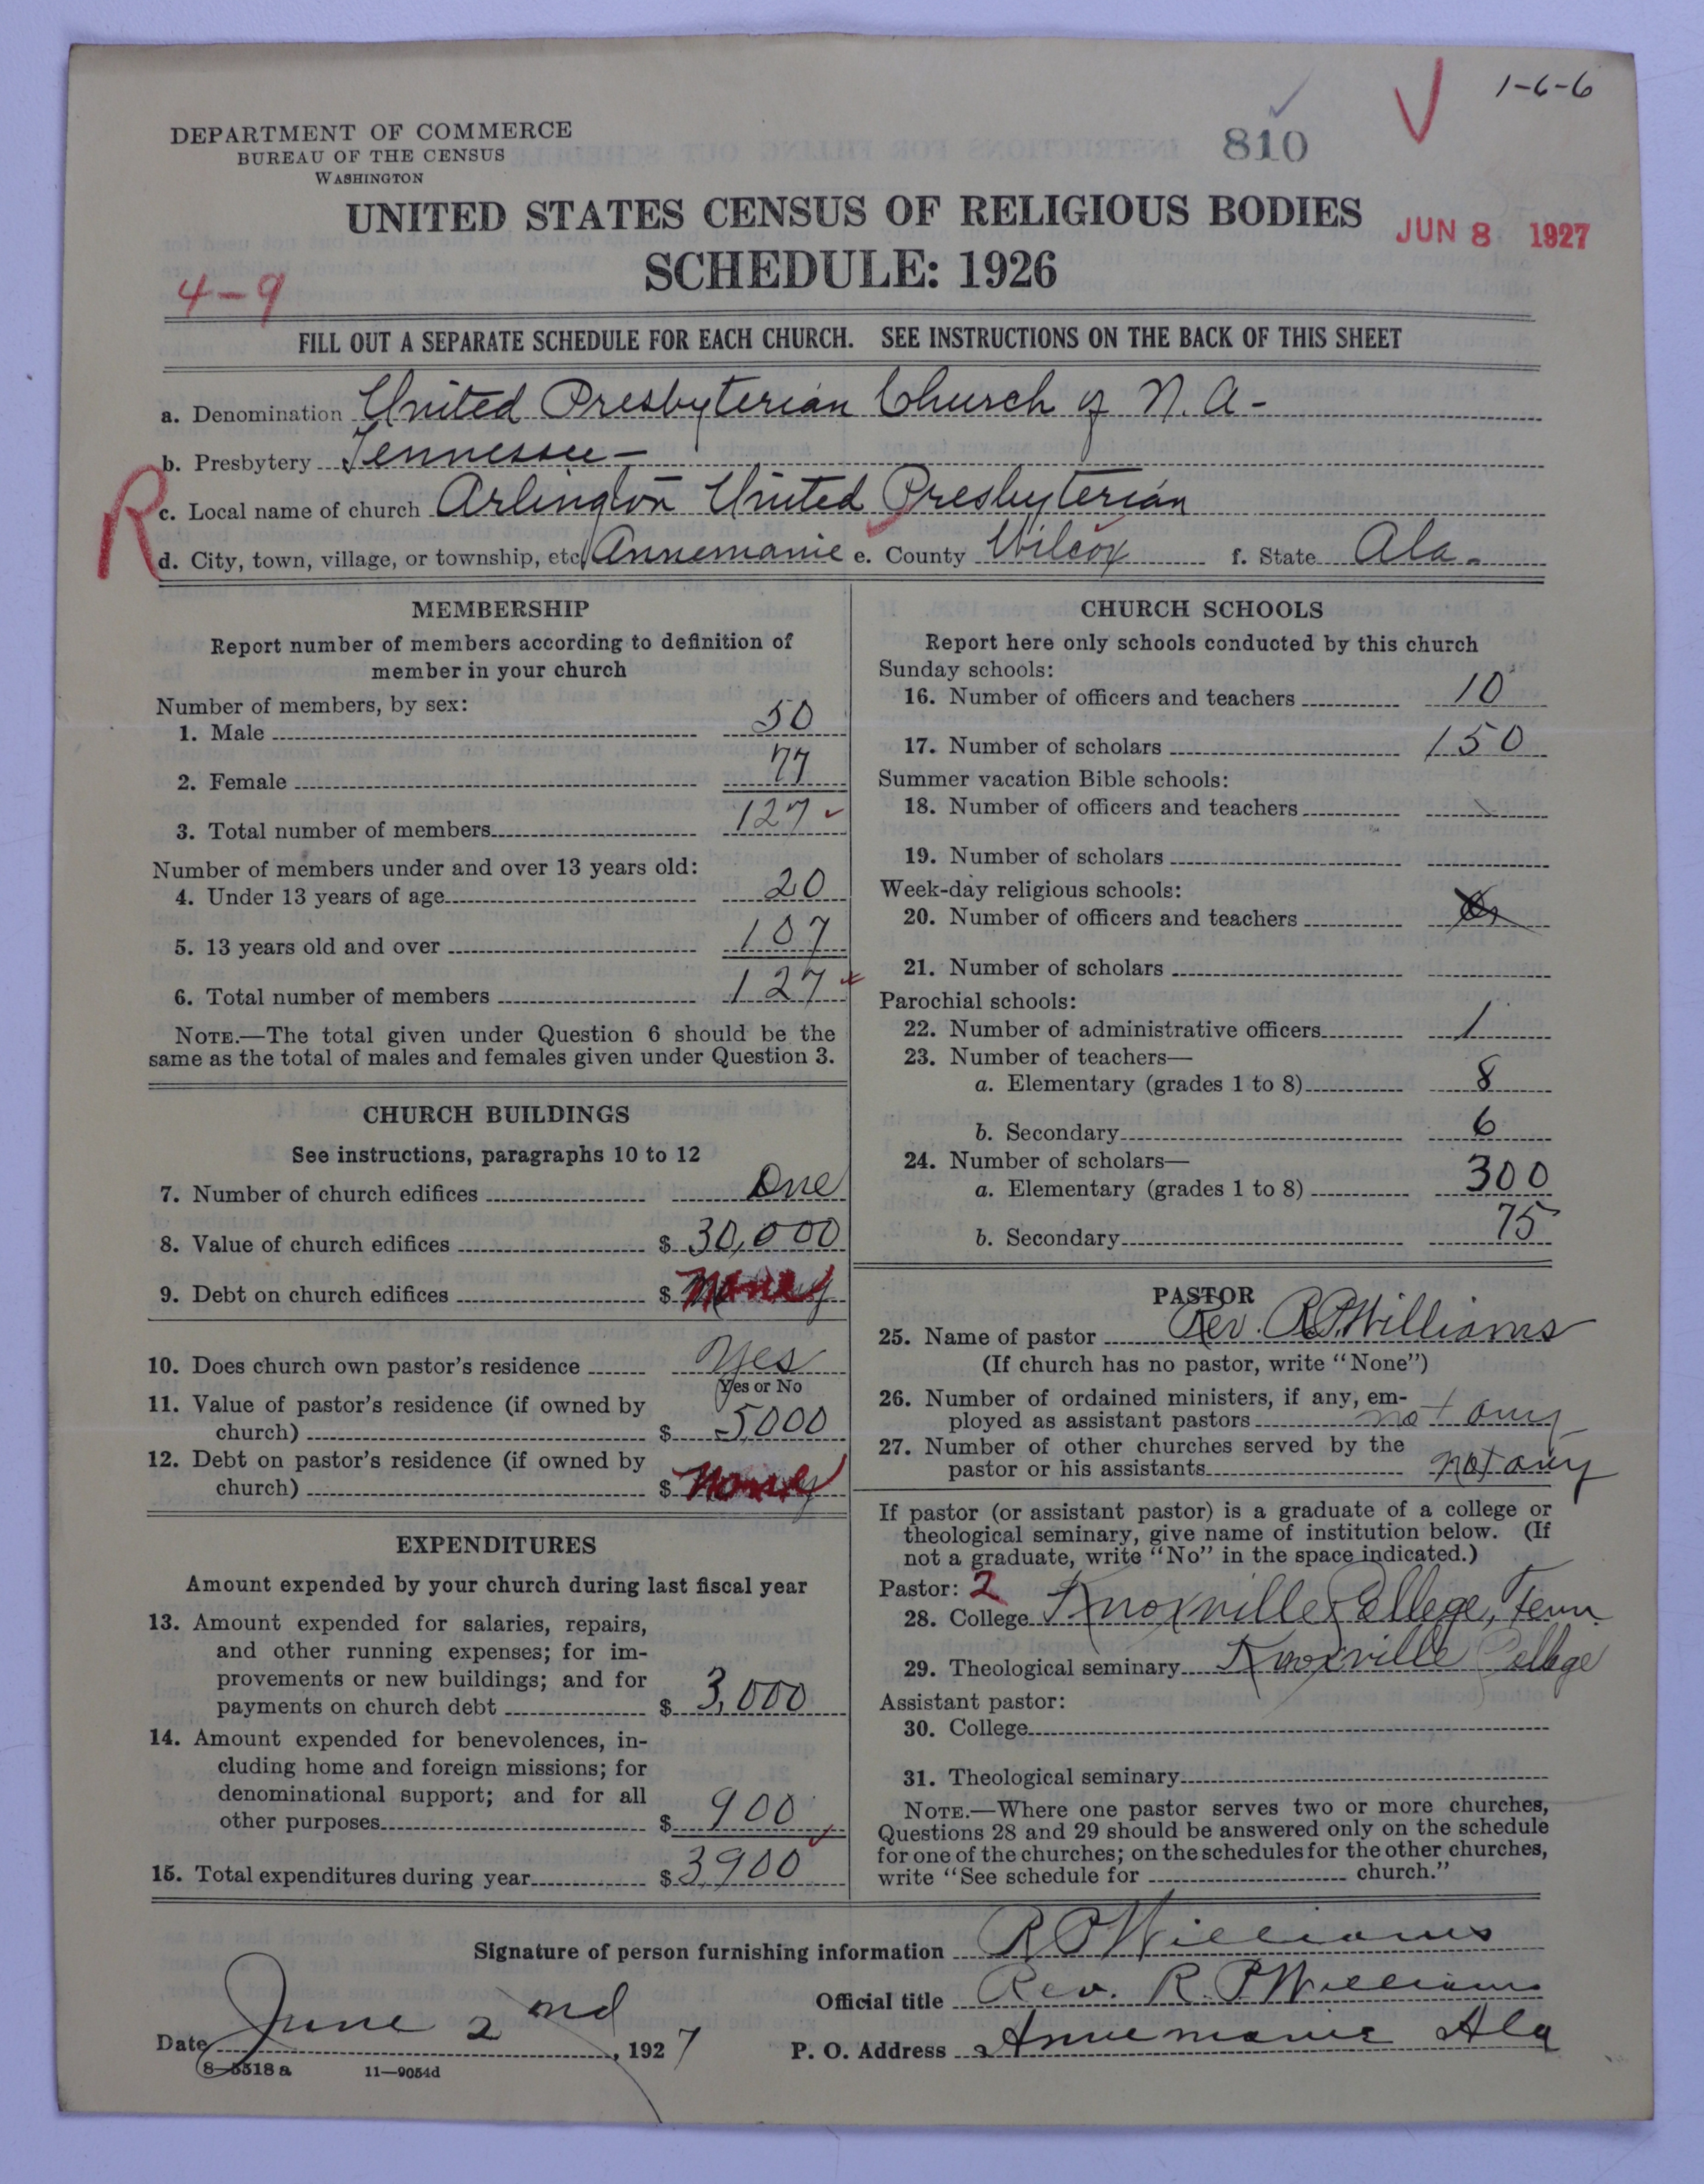 1-6-6
DEPARTMENT OF COMMERCE
BUREAU OF THE CENSUS
WASHINGTON
810
UNITED STATES CENSUS OF RELIGIOUS BODIES
JUN 8 1927
SCHEDULE: 1926
4-9
FILL OUT A SEPARATE SCHEDULE FOR EACH CHURCH. SEE INSTRUCTIONS ON THE BACK OF THIS SHEET
a. Denomination United Presbyterian Church of N.A-
b. Presbytery Tennessee-
R
c. Local name of church Arlington United Presbyterian
d. City, town, village, or township, etc. Annemanie e. County Wilcox f. State Ala.
MEMBERSHIP
Report number of members according to definition of
member in your church
Number of members, by sex:
1. Male 50
2. Female 77
3. Total number of members 127
Number of members under and over 13 years old:
4. Under 13 years of age 20
5. 13 years old and over 107
6. Total number of members 127
NOTE.—The total given under Question 6 should be the
same as the total of males and females given under Question 3.
CHURCH BUILDINGS
See instructions, paragraphs 10 to 12
7. Number of church edifices One
8. Value of church edifices $ 30,000
9. Debt on church edifices $
10. Does church own pastor's residence Yes
Yes or No
11. Value of pastor's residence (if owned by
church) $ 5,000
12. Debt on pastor's residence (if owned by
church) $
EXPENDITURES
Amount expended by your church during last fiscal year
13. Amount expended for salaries, repairs,
and other running expenses; for im-
provements or new buildings; and for
payments on church debt $ 3,000
14. Amount expended for benevolences, in-
cluding home and foreign missions; for
denominational support; and for all
other purposes $ 900
15. Total expenditures during year $ 3,900
CHURCH SCHOOLS
Report here only schools conducted by this church
Sunday schools:
16. Number of officers and teachers 10
17. Number of scholars 150
Summer vacation Bible schools:
18. Number of officers and teachers
19. Number of scholars
Week-day religious schools:
20. Number of officers and teachers
21. Number of scholars
Parochial schools:
22. Number of administrative officers 1
23. Number of teachers—
a. Elementary (grades 1 to 8) 8
b. Secondary 6
24. Number of scholars—
a. Elementary (grades 1 to 8) 300
b. Secondary 75
PASTOR
25. Name of pastor Rev. R.P. Williams
(If church has no pastor, write "None")
26. Number of ordained ministers, if any, em-
ployed as assistant pastors not any
27. Number of other churches served by the
pastor or his assistants not any
If pastor (or assistant pastor) is a graduate of a college or
theological seminary, give name of institution below. (If
not a graduate, write "No" in the space indicated.)
Pastor: 2
28. College Knoxville College, Tenn
29. Theological seminary Knoxville College
Assistant pastor:
30. College
31. Theological seminary
NOTE.—Where one pastor serves two or more churches,
Questions 28 and 29 should be answered only on the schedule
for one of the churches; on the schedules for the other churches,
write "See schedule for church."
Signature of person furnishing information R P Williams
Official title Rev. R. P Williams
Date June 2nd, 1927 P. O. Address Annemanie Ala
8-5518 a 11—9054d